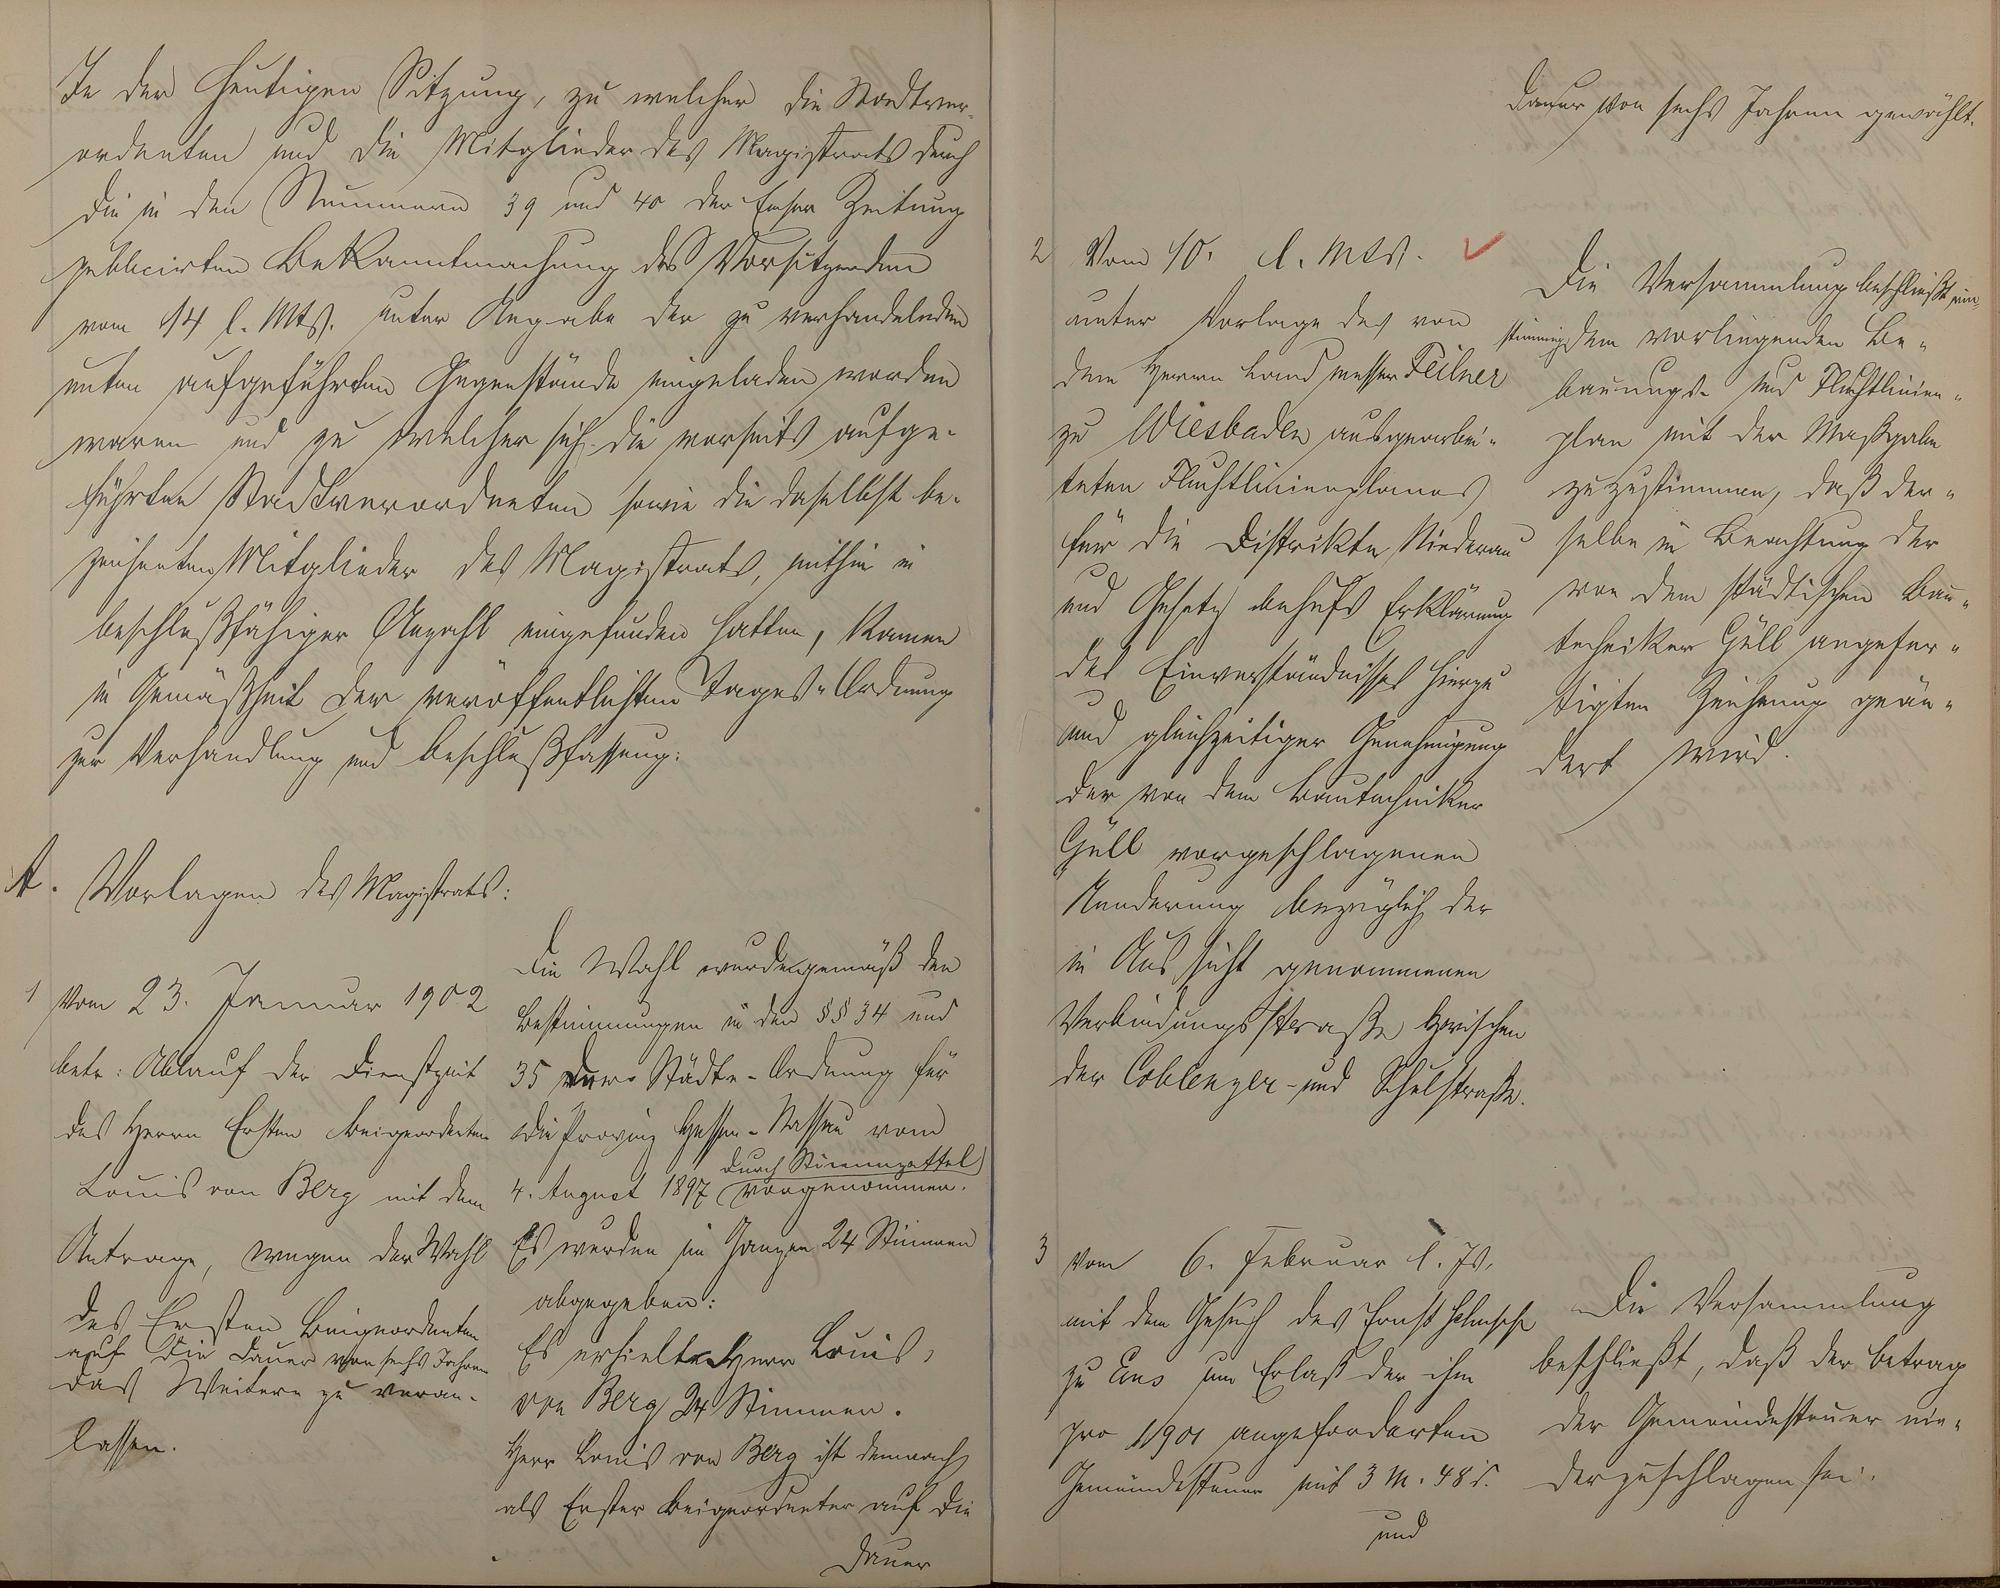 In der heutigen Sitzung, zu welcher die Stadtver-
ordneten und die Mitglieder des Magistrats durch
die in den Nummern 39 und 40 der Emser Zeitung
publicirten Bekanntmachung des Vorsitzenden
vom 14 l. Mts. unter Angabe der zu verhandelnden
unten aufgeführten Gegenstände eingeladen worden
waren und zu welcher sich die vorseits aufge-
führten Stadtverordneten sowie die daselbst be-
zeichneten Mitglieder des Magistrats, mithin in
beschlußfähiger Anzahl eingefunden hatten, kamen
in Gemäßheit der veröffentlichten Tages-Ordnung
zur Verhandlung und Beschlußfassung:
A. Vorlagen des Magistrats:
1 Vom 23. Januar 1902
betr: Ablauf der Dienstzeit
des Herrn Ersten Beigeordneten
Louis von Berg mit dem
Antrage, wegen der Wahl
des Ersten Beigeordneten
auf die Dauer von sechs Jahren
das Weitere zu veran-
lassen.
Die Wahl wurde gemäß den
Bestimmungen in den §§ 34 und
35 der Städte-Ordnung für
die Provinz Hessen-Nassau vom
durch Stimmzettel
4. August 1897 vorgenommen.
Es wurden im Ganzen 24 Stimmen
abgegeben:
Es erhielt Herr Louis
von Berg 24 Stimmen.
Herr Louis von Berg ist demnach
als Erster Beigeordneter auf die
Dauer
Dauer von sechs Jahren gewählt.
2 Vom 10. l. Mts.
unter Vorlage des von
dem Herrn Landmesser Feilner
zu Wiesbaden ausgearbei-
teten Fluchtlinienplanes
für die Distrikte Niederau
und Gesetz behufs Erklärung
des Einverständnisses hierzu
und gleichzeitiger Genehmigung
der von dem Bautechniker
Güll vorgeschlagenen
Aenderung bezüglich der
in Aussicht genommenen
Verbindungsstraße zwischen
der Coblenzer- und Schulstraße.
Die Versammlung beschließt ein-
stimmig dem vorliegenden Be-
bauungs- und Fluchtlinien-
plan mit der Maßgabe
zuzustimmen, daß der-
selbe in Beachtung der
von dem städtischen Bau-
techniker Güll angefer-
tigten Zeichnung geän-
dert wird.
3 Vom 6. Februar l. Js.
mit dem Gesuch des Ernst
zu Ems um Erlaß der ihm
pro 1901 angeforderten
Gemeindesteuer mit 3 M. 48 d.
und
Die Versammlung
beschließt, daß der Betrag
der Gemeindesteuer nie-
derzuschlagen sei.